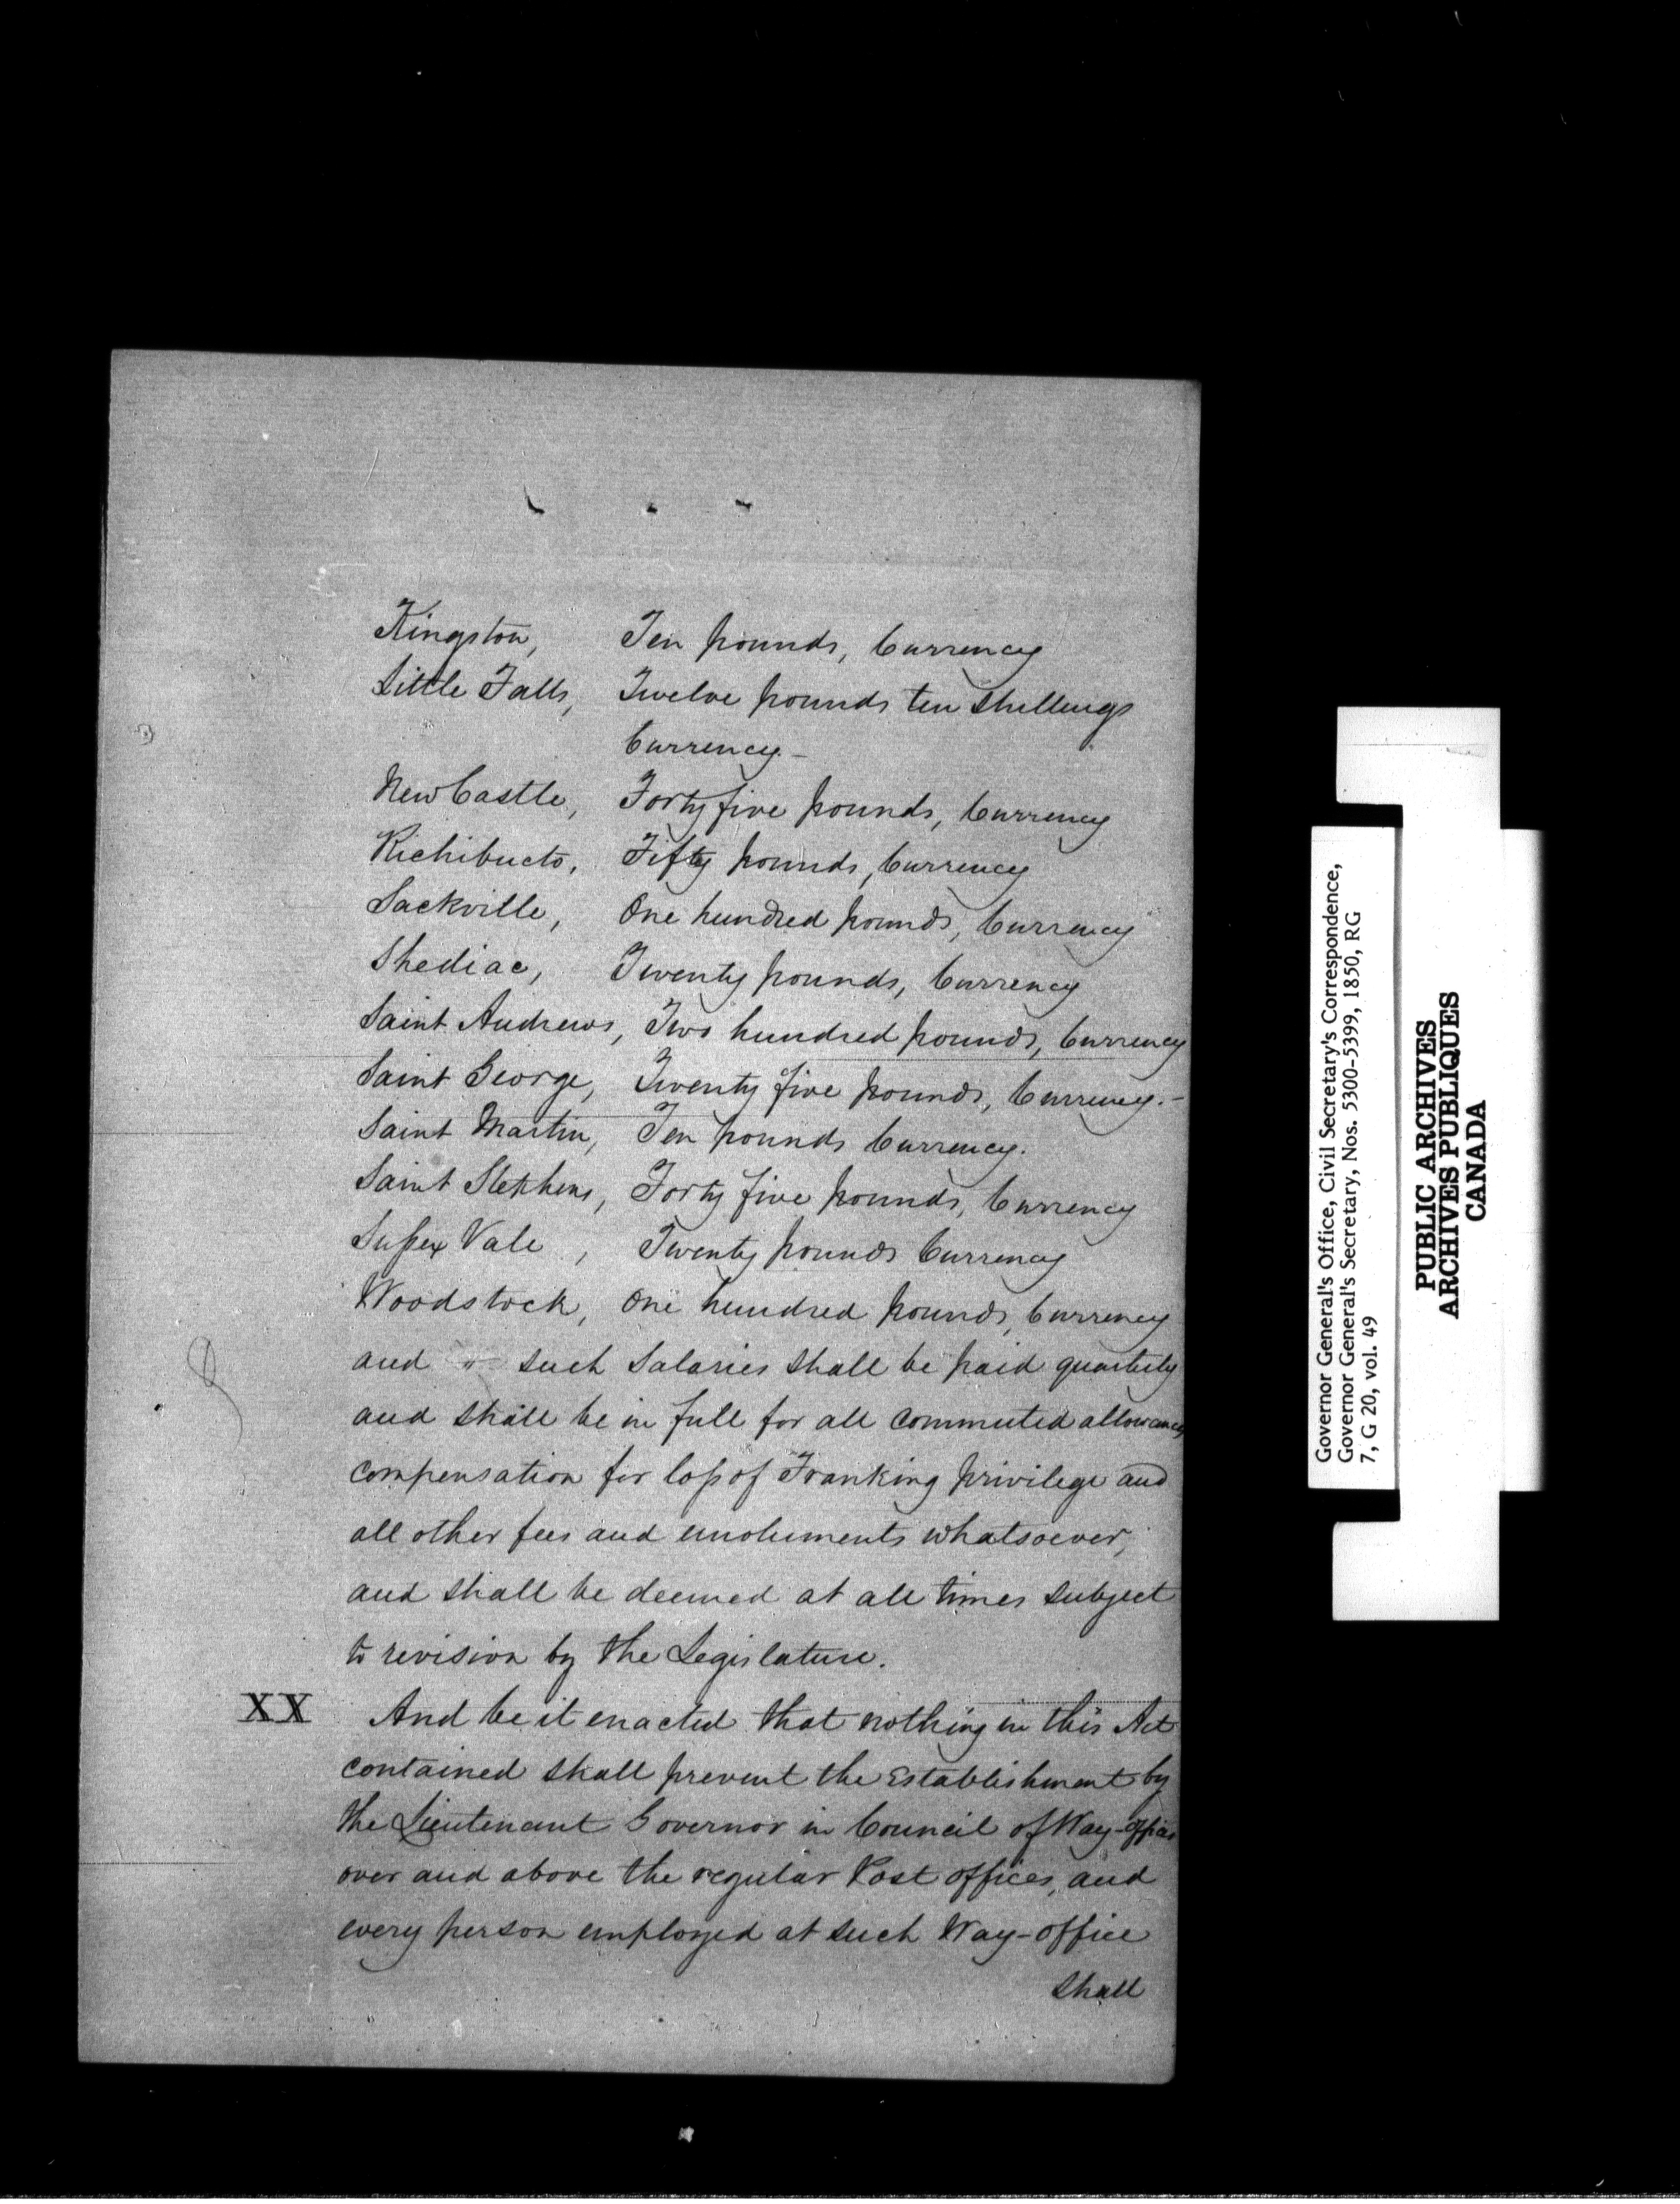 Kingston, Ten pounds, Currency
Little Falls, Twelve pounds ten shillings
Currency.-
New Castle, Forty five pounds, Currency
Richibucto, Fifty pounds, Currency
Sackville, One hundred pounds, Currency
Shediac, Twenty pounds, Currency
Saint Andrews, Two hundred pounds, Currency
Saint George, Twenty five pounds, Currency.-
Saint Martin, Ten pounds Currency.
Saint Stephens, Forty five pounds, Currency
Sussex Vale, Twenty pounds Currency
Woodstock, One hundred pounds, Currency
and " such Salaries shall be paid quarterly
and shall be in full for all commuted allowances
compensation for loss of Franking privilege and
all other fees and emoluments whatsoever,
and shall be deemed at all times subject
to revision by the Legislature.
XX And be it enacted that nothing in this Act
contained shall prevent the Establishment by
the Lieutenant Governor in Council of Way-offices
over and above the regular Post offices, and
every person employed at such Way-office
shall
Governor General's Office, Civil Secretary's Correspondence,
Governor General's Secretary, Nos. 5300-5399, 1850, RG
7, G 20, vol. 49
PUBLIC ARCHIVES
ARCHIVES PUBLIQUES
CANADA